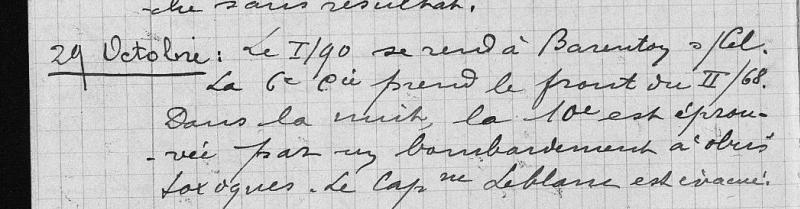 -che sans résultat.
29 Octobre : Le I/90 se rend à Barenton s/Cel.
La 6e Cie prend le front du II/68.
Dans la nuit, la 10e est éprou-
-vée par un bombardement à obus
toxiques. Le Capne Leblanc est évacué.